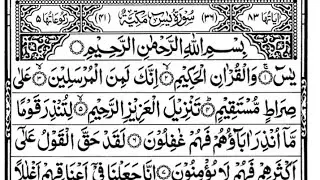 اٰیَاتُهَا ۸۳ (۳۶) سُوْرَةُ یٰسٓ مَكِّیَّةٌ (۴۱) رُكُوْعَاتُهَا ۵
بِسْمِ اللّٰهِ الرَّحْمٰنِ الرَّحِیْمِ
یٰسٓ ۚ۝۱ وَالْقُرْاٰنِ الْحَكِیْمِ ۙ۝۲ اِنَّكَ لَمِنَ الْمُرْسَلِیْنَ ۙ۝۳ عَلٰی
صِرَاطٍ مُّسْتَقِیْمٍ ؕ۝۴ تَنْزِیْلَ الْعَزِیْزِ الرَّحِیْمِ ۙ۝۵ لِتُنْذِرَ قَوْمًا
مَّاۤ اُنْذِرَ اٰبَآؤُهُمْ فَهُمْ غٰفِلُوْنَ ۝۶ لَقَدْ حَقَّ الْقَوْلُ عَلٰۤی
اَكْثَرِهِمْ فَهُمْ لَا یُؤْمِنُوْنَ ۝۷ اِنَّا جَعَلْنَا فِیْۤ اَعْنَاقِهِمْ اَغْلٰلًا